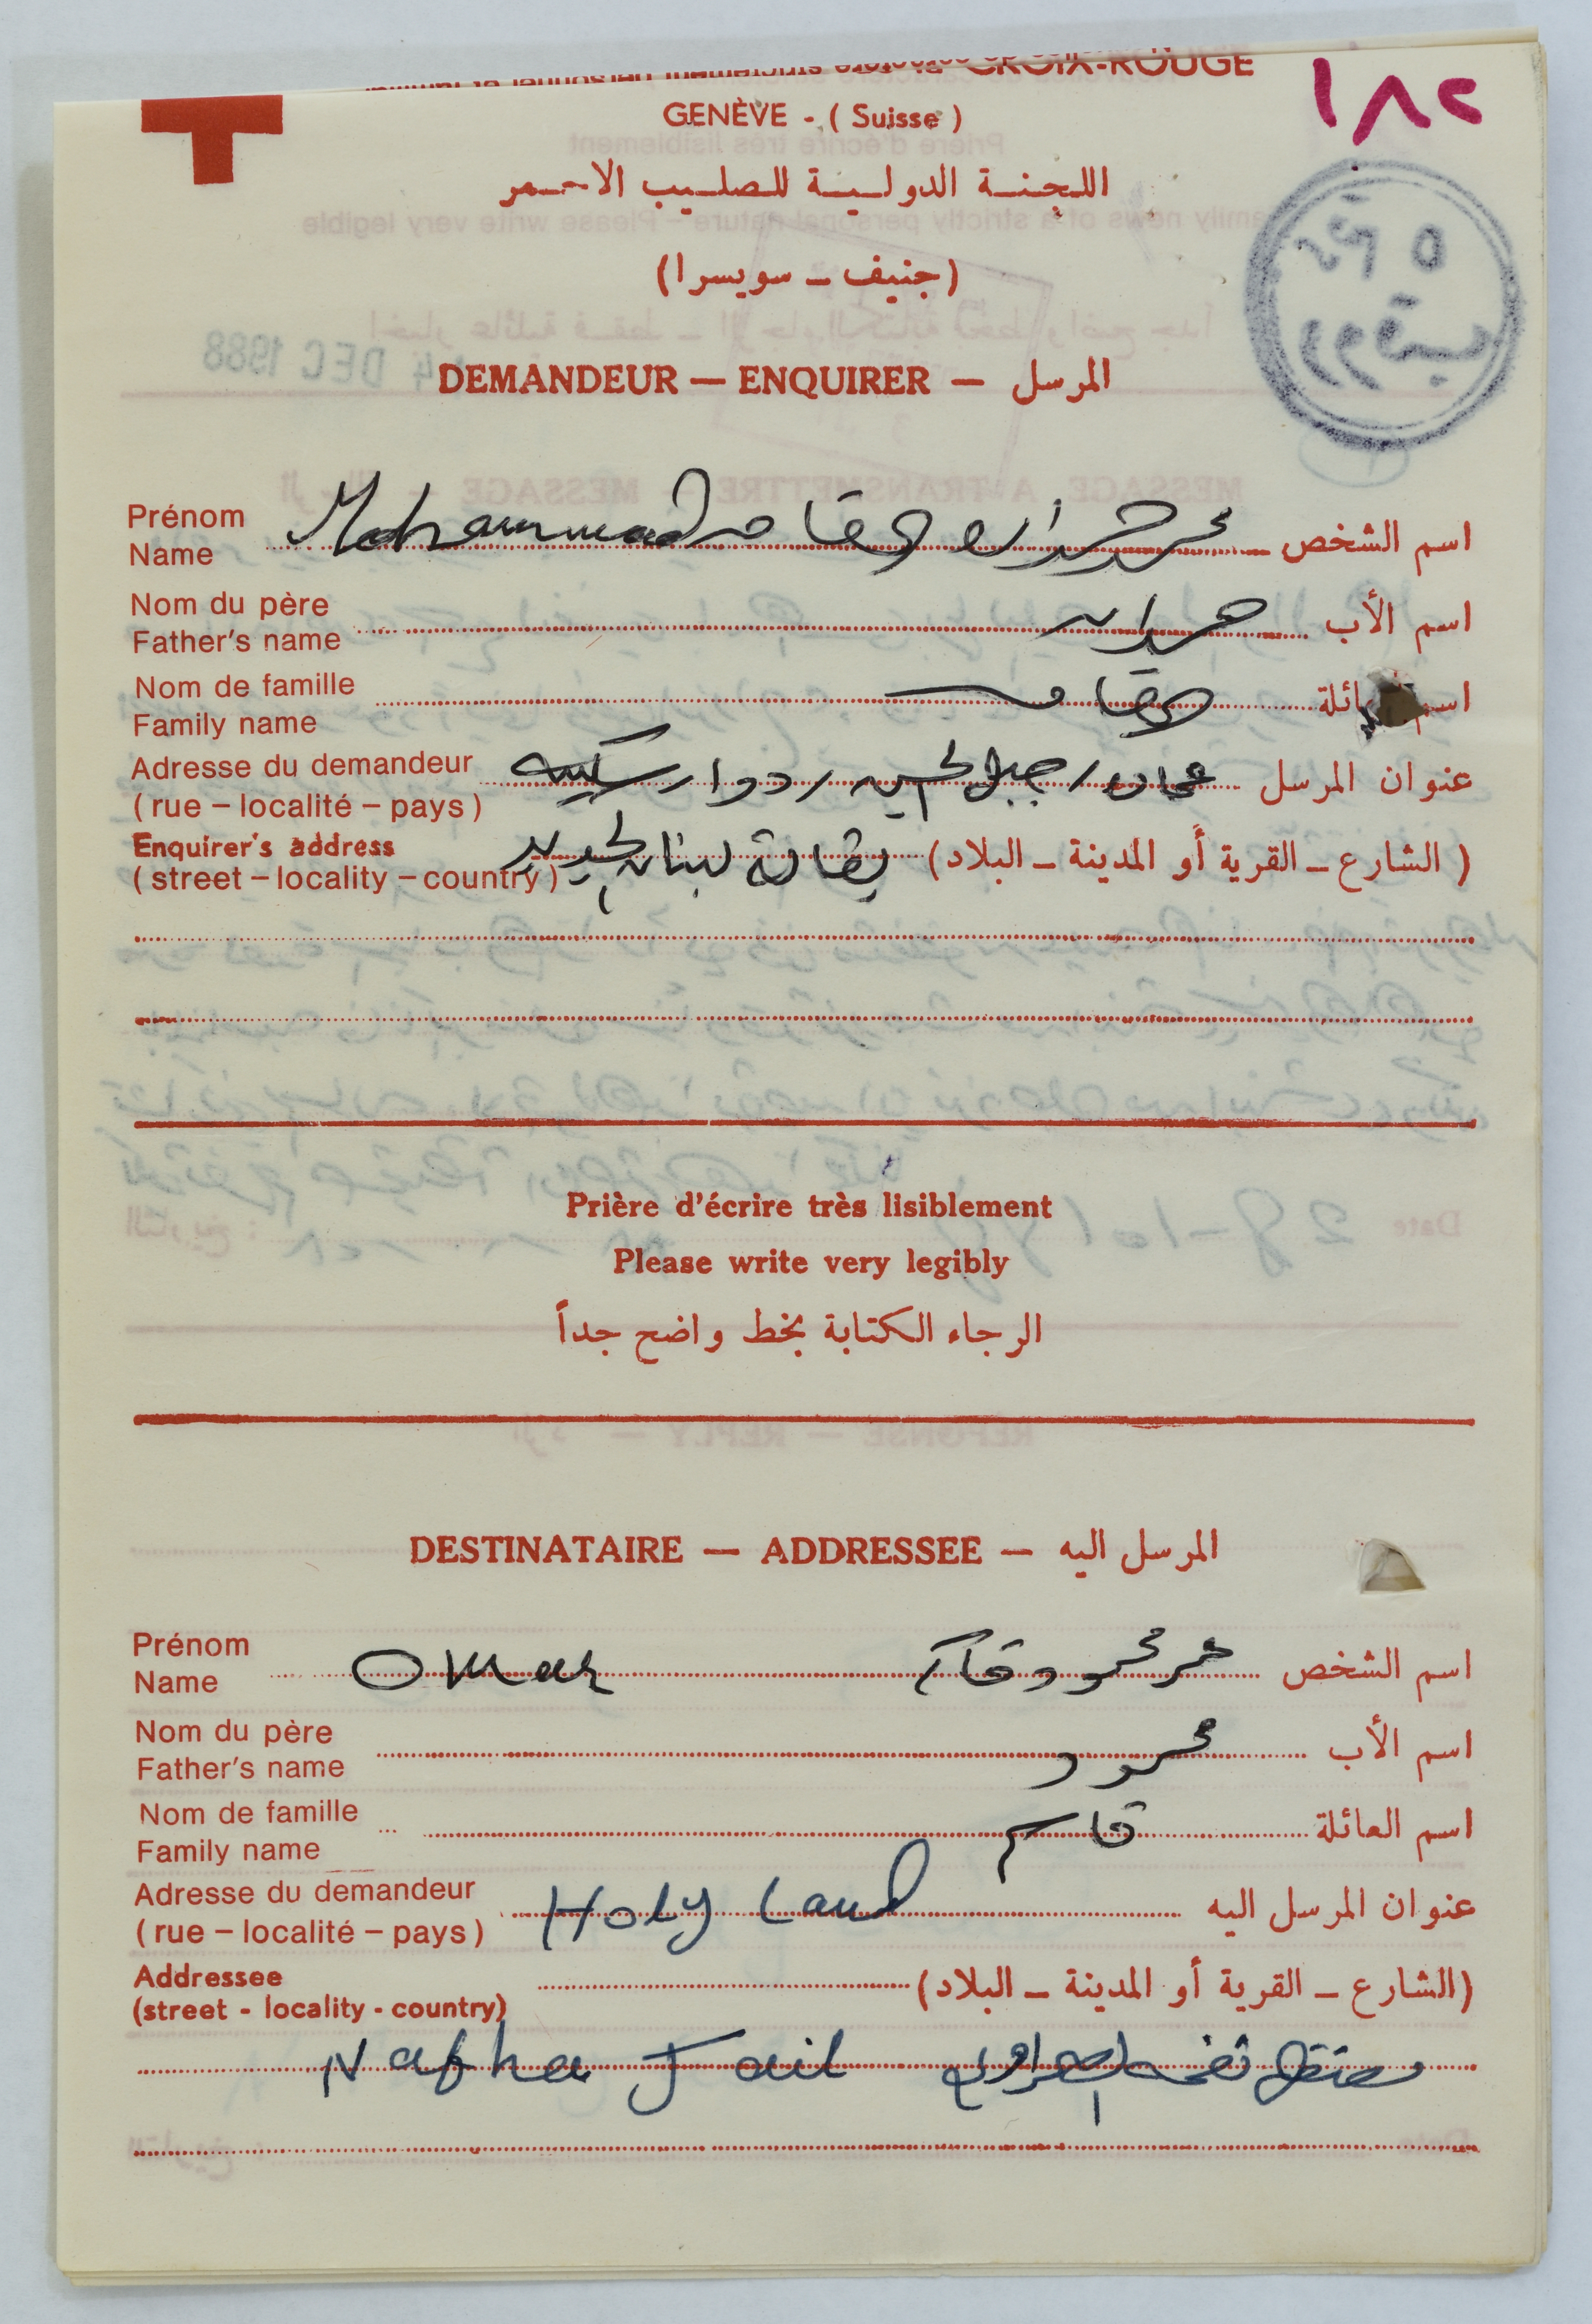 CROIX-ROUGE
GENÈVE - ( Suisse )
١٨٢
اللجنة الدولية للصليب الاحمر
(جنيف - سويسرا)
DEMANDEUR — ENQUIRER — المرسل
Prénom
Name
Mohammad محمد
اسم الشخص
Nom du père
Father's name
اسم الأب
Nom de famille
Family name
اسم العائلة
Adresse du demandeur
(rue – localité – pays)
عنوان المرسل
عمان / جبل الحسين / دوار
Enquirer's address
(street – locality – country)
(الشارع - القرية أو المدينة - البلاد)
بقالة لبنان الجديد
Prière d'écrire très lisiblement
Please write very legibly
الرجاء الكتابة بخط واضح جداً
DESTINATAIRE — ADDRESSEE — المرسل اليه
Prénom
Name
Omar عمر محمود قاسم
اسم الشخص
Nom du père
Father's name
محمود
اسم الأب
Nom de famille
Family name
قاسم
اسم العائلة
Adresse du demandeur
(rue – localité – pays)
Holy Land
عنوان المرسل اليه
Addressee
(street - locality - country)
(الشارع - القرية أو المدينة - البلاد)
Nafha Jail معتقل نفحه الصحراوي